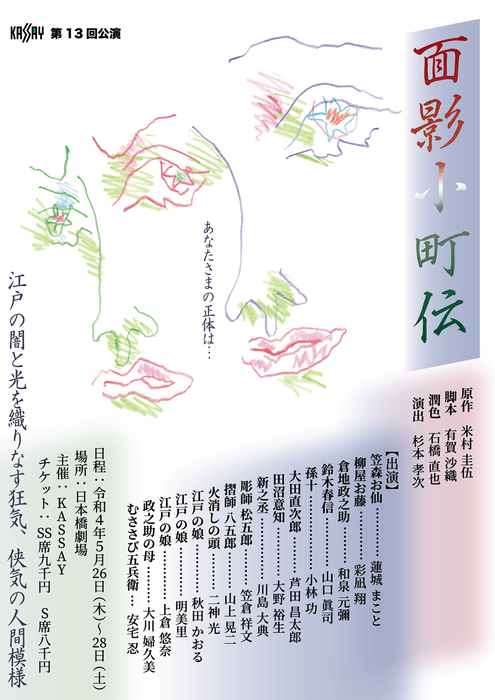 KASSAY 第13回公演
面影小町伝
あなたさまの正体は…
原作 米村 圭伍
脚本 有賀 沙織
潤色 石橋 直也
演出 杉本 孝次
【出演】
笠森お仙………………蓮城 まこと
柳屋お藤………………彩凪 翔
倉地政之助……………和泉 元彌
鈴木春信………………山口 眞司
孫十……………………小林 功
大田直次郎……………芦田 昌太郎
田沼意知………………大野 裕生
新之丞…………………川島 大典
彫師 松五郎……………笠倉 祥文
摺師 八五郎……………山上 晃二
火消しの頭……………二神 光
江戸の娘………………秋田 かおる
江戸の娘………………明美里
江戸の娘………………上倉 悠奈
政之助の母……………大川 婦久美
むささび五兵衛…安宅 忍
日程：令和4年5月26日(木)～28日(土)
場所：日本橋劇場
主催：KASSAY
チケット：SS席九千円 S席八千円
江戸の闇と光を織りなす狂気、侠気の人間模様